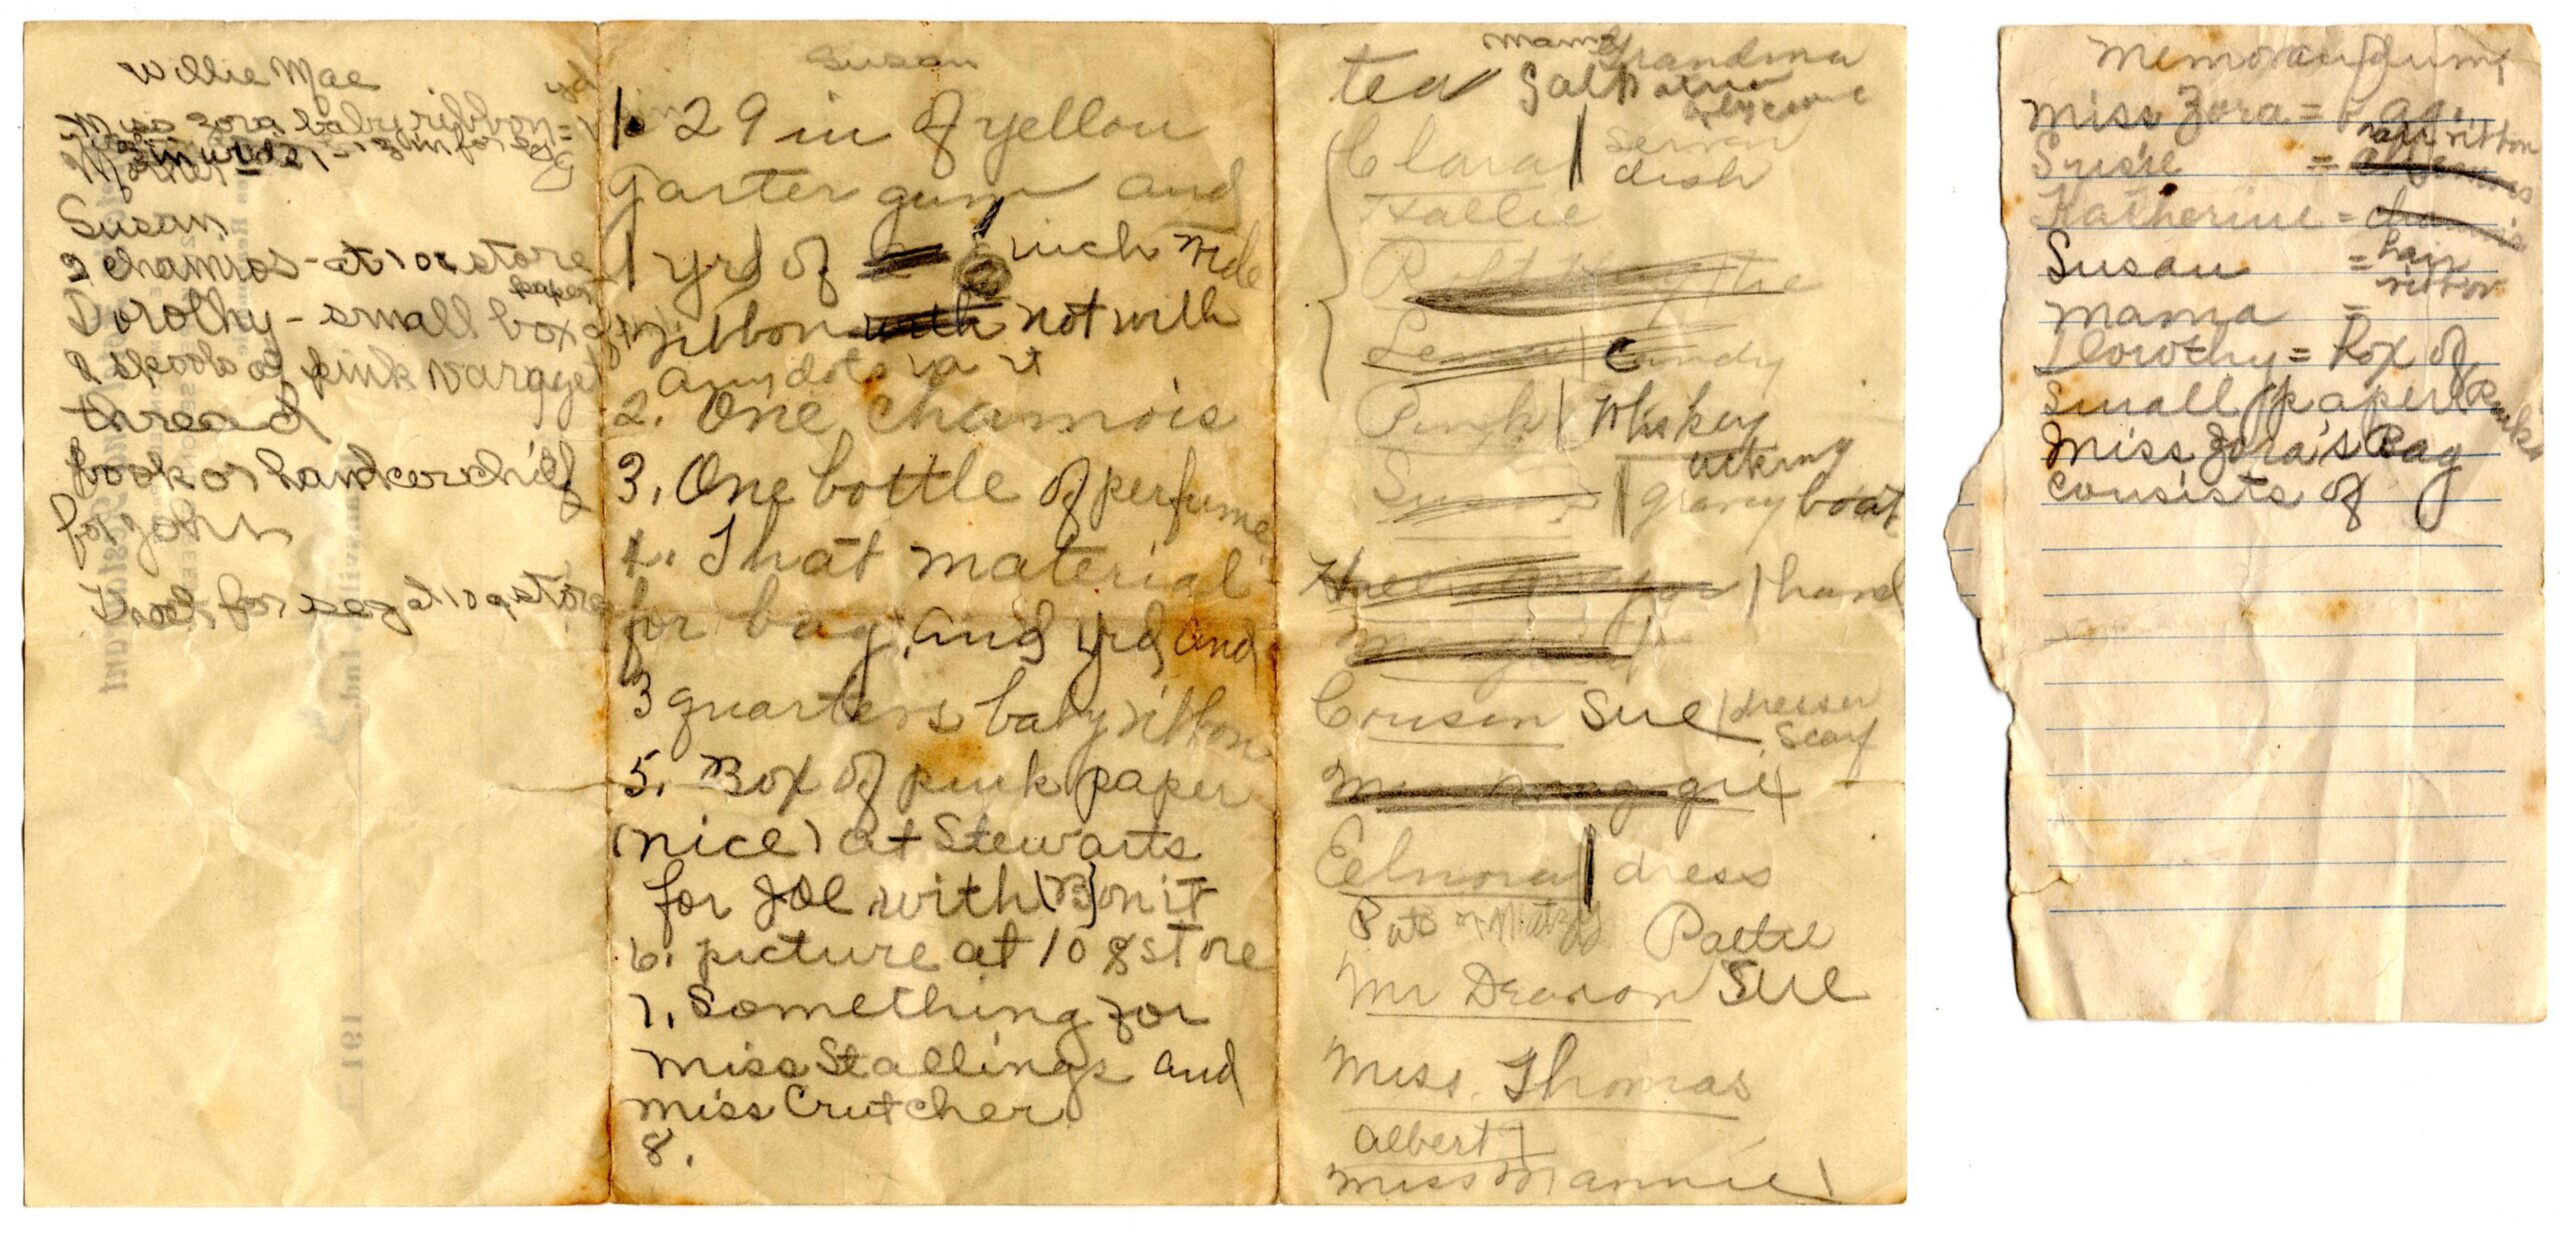 Willie Mae
yd
Miss Zora baby ribbon = 1
Mother
Susan
2 chamios - at 10¢ store
paper
Dorothy - small box of
2 spools of pink
thread
book or hankerchilf
for John
for at 10¢ store
Susan
1. 29 in of yellow
garter gum and
1 yrd of inch wide
ribbon with not with
any dots in it
2. One chamois
3. One bottle of perfume
4. That material
for bag and yrd and
3 quarters baby ribbon
5. Box of pink paper
(nice) at Stewarts
for Joe with (B) on it
6. picture at 10¢ store
7. Something for
Miss Stallings and
Miss Crutcher
8.
Mama Grandma
tea Salt
Clara | dish
Hallie
candy
Pink | Whiskey
gravy boat
| hand
Cousin Sue | dresser
Scarf
Eelnora | dress
Pattie
Mr Deacon Sue
Miss. Thomas
Albert
Miss Mannie
Memorandums
Miss Zora = Bag
hair ribbon
Susie =
Katherine = chamois
Susan = hair
ribbon
Mama =
Dorothy = Box of
small paper (Pink)
Miss Zora's Bag
consists of